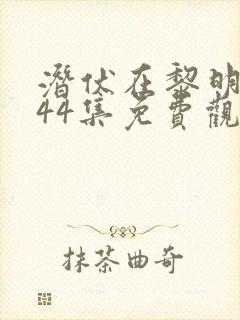 潛伏在黎明
44集免費觀
抹茶曲奇